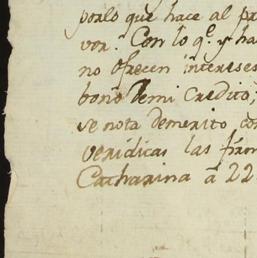 porlo que hace al pr
vor.n Con lo q.e y ha
no ofrecen intereses
bono demi Credito;
se nota demerito con
veridicas las firm
Catharina â 22